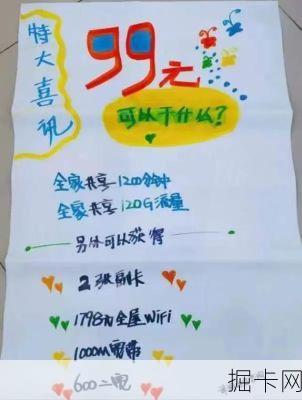 特大喜讯
99元
可以干什么?
全家共享1200分钟
全家共享120G流量
另外可以获得
2张副卡
1798元全屋WiFi
1000M宽带
掘卡网